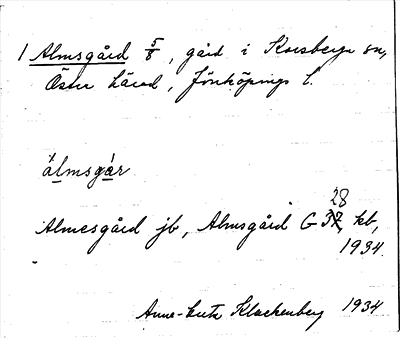 1 Almsgård 5/8, gård i Korsberga sn,
Öster härad, Jönköpings l.
älmsgár
Almesgård jb, Almsgård G 37 28 kb,
1934.
Anne-Greta Klockenberg 1934